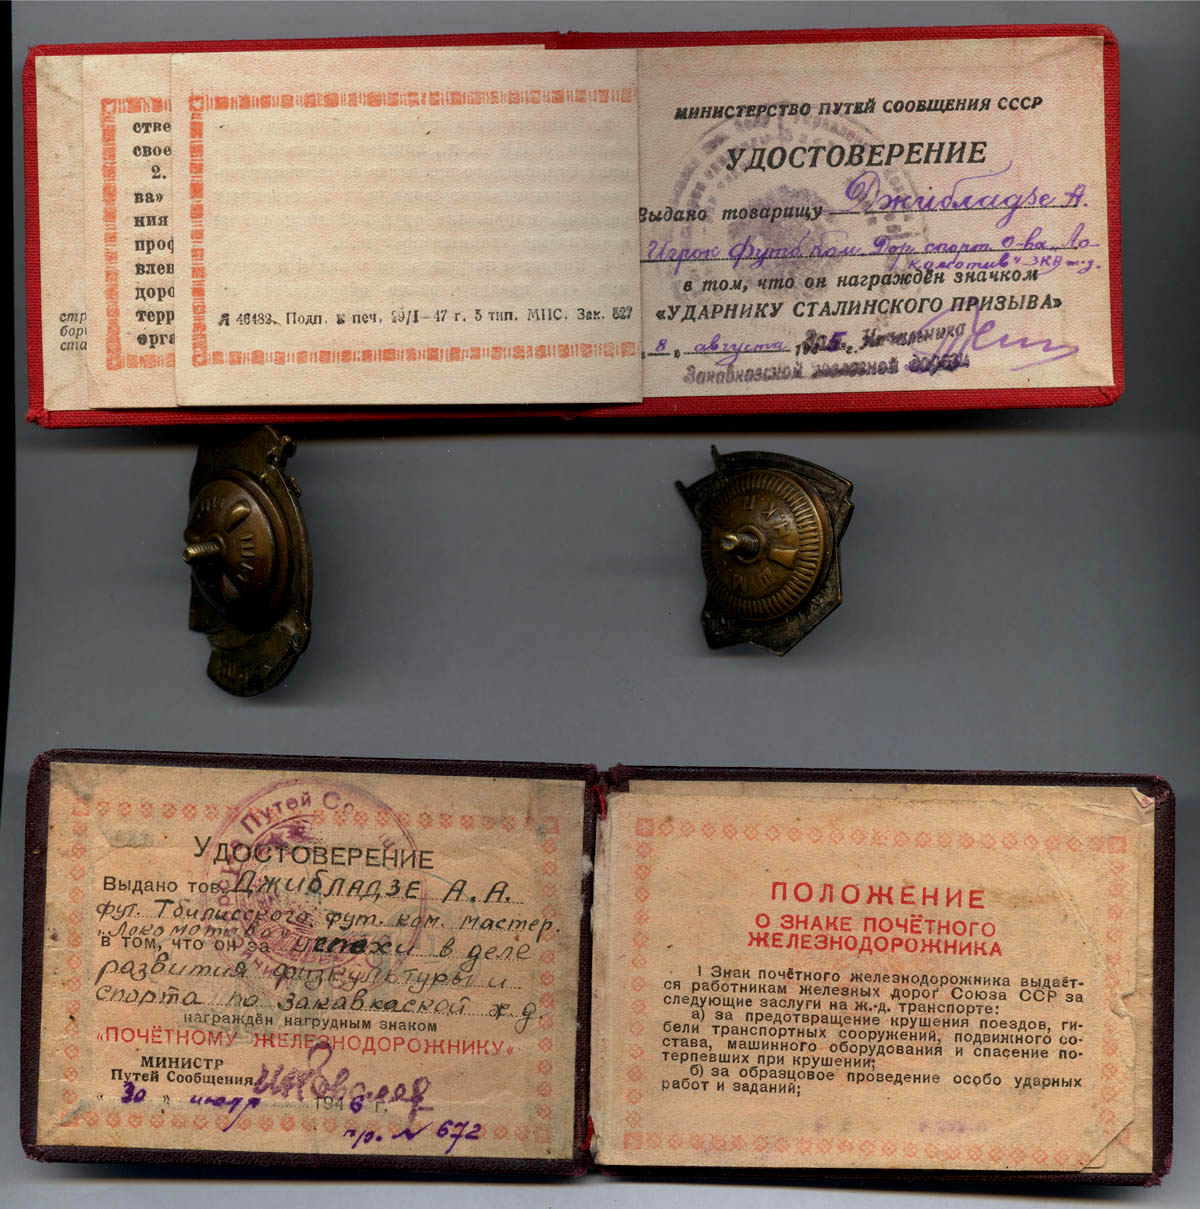 стве
свое
2.
ва»
ния
проф
влен
доро
терр
орга
стр
бор
ста
Я 46482. Подп. к печ. 29/I—47 г. 5 тип. МПС. Зак. 527
МИНИСТЕРСТВО ПУТЕЙ СООБЩЕНИЯ СССР
УДОСТОВЕРЕНИЕ
Выдано товарищу Джибладзе А.
Игрок футб. ком. Дор. спорт. О-ва „Ло-
комотив" ЗКВ ж.д.
в том, что он награждён значком
«УДАРНИКУ СТАЛИНСКОГО ПРИЗЫВА»
„8„ августа 194 г. Зам. Начальника
Закавказской железной дороги
УДОСТОВЕРЕНИЕ
Выдано тов. ДЖИБЛАДЗЕ А. А.
фут. Тбилисского фут. ком. мастер.
„Локомотива"
в том, что он за успехи в деле
развития физкультуры и
спорта по Закавкаской ж.д.
награждён нагрудным знаком
"ПОЧЁТНОМУ ЖЕЛЕЗНОДОРОЖНИКУ"
МИНИСТР
Путей Сообщения
"30" июля 1946 г.
пр. N 672
ПОЛОЖЕНИЕ
О ЗНАКЕ ПОЧЁТНОГО
ЖЕЛЕЗНОДОРОЖНИКА
1 Знак почётного железнодорожника выдаёт-
ся работникам железных дорог Союза ССР за
следующие заслуги на ж.-д. транспорте:
а) за предотвращение крушения поездов, ги-
бели транспортных сооружений, подвижного со-
става, машинного оборудования и спасение по-
терпевших при крушении;
б) за образцовое проведение особо ударных
работ и заданий;